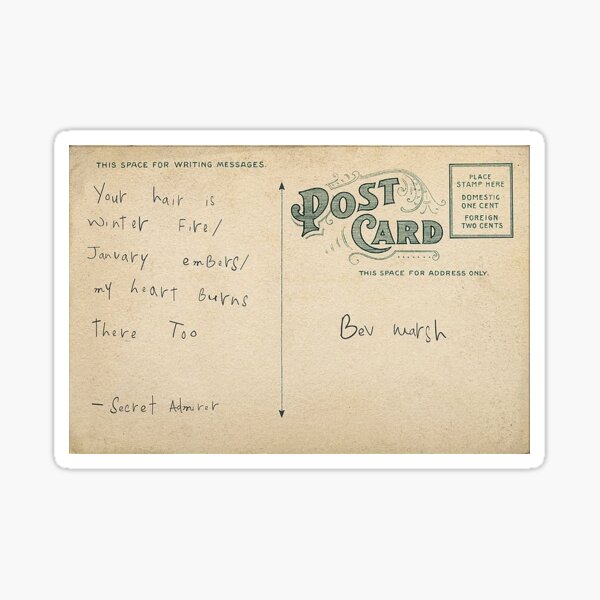 THIS SPACE FOR WRITING MESSAGES.
Your hair is
winter fire/
January embers/
my heart Burns
there Too
— Secret Admirer
POST
CARD
THIS SPACE FOR ADDRESS ONLY.
PLACE
STAMP HERE
DOMESTIC
ONE CENT
FOREIGN
TWO CENTS
Bev marsh